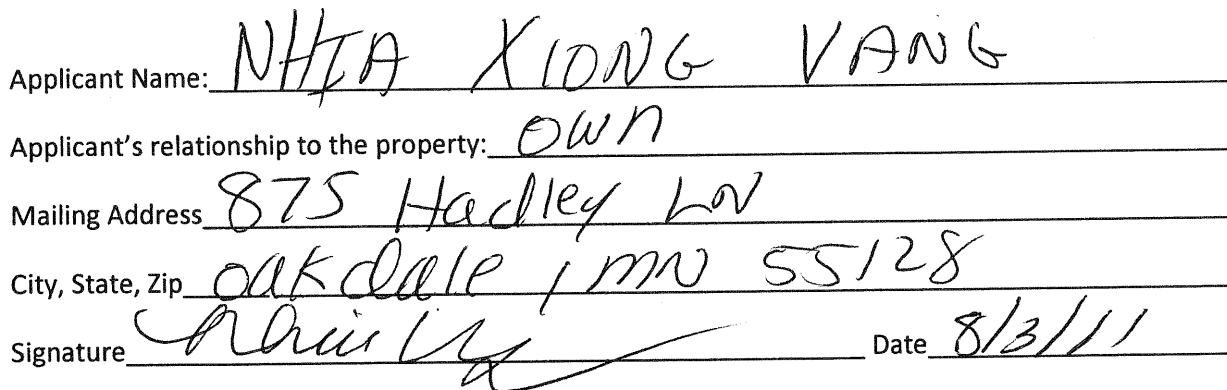 Applicant Name: NHIA XIONG VANG
Applicant's relationship to the property: own
Mailing Address 875 Hadley LN
City, State, Zip oakdale, MN 55128
Signature Date 8/3/11